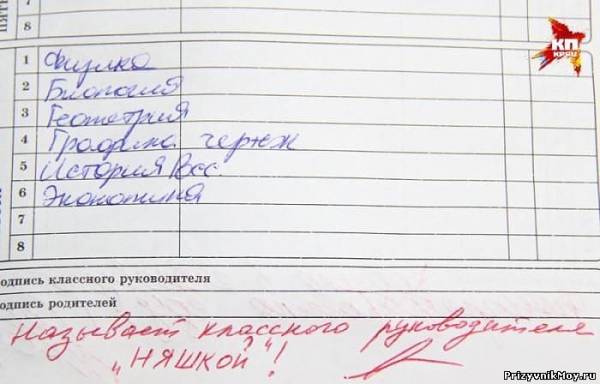 8
КП
KP.RU
1 Физика
2 Биология
3 Геометрия
4 Графика чертеж
5 История Всс
6 Экономика
7
8
одпись классного руководителя
одпись родителей
Называет классного руководителя
"няшкой"!
PrizyvnikMoy.ru